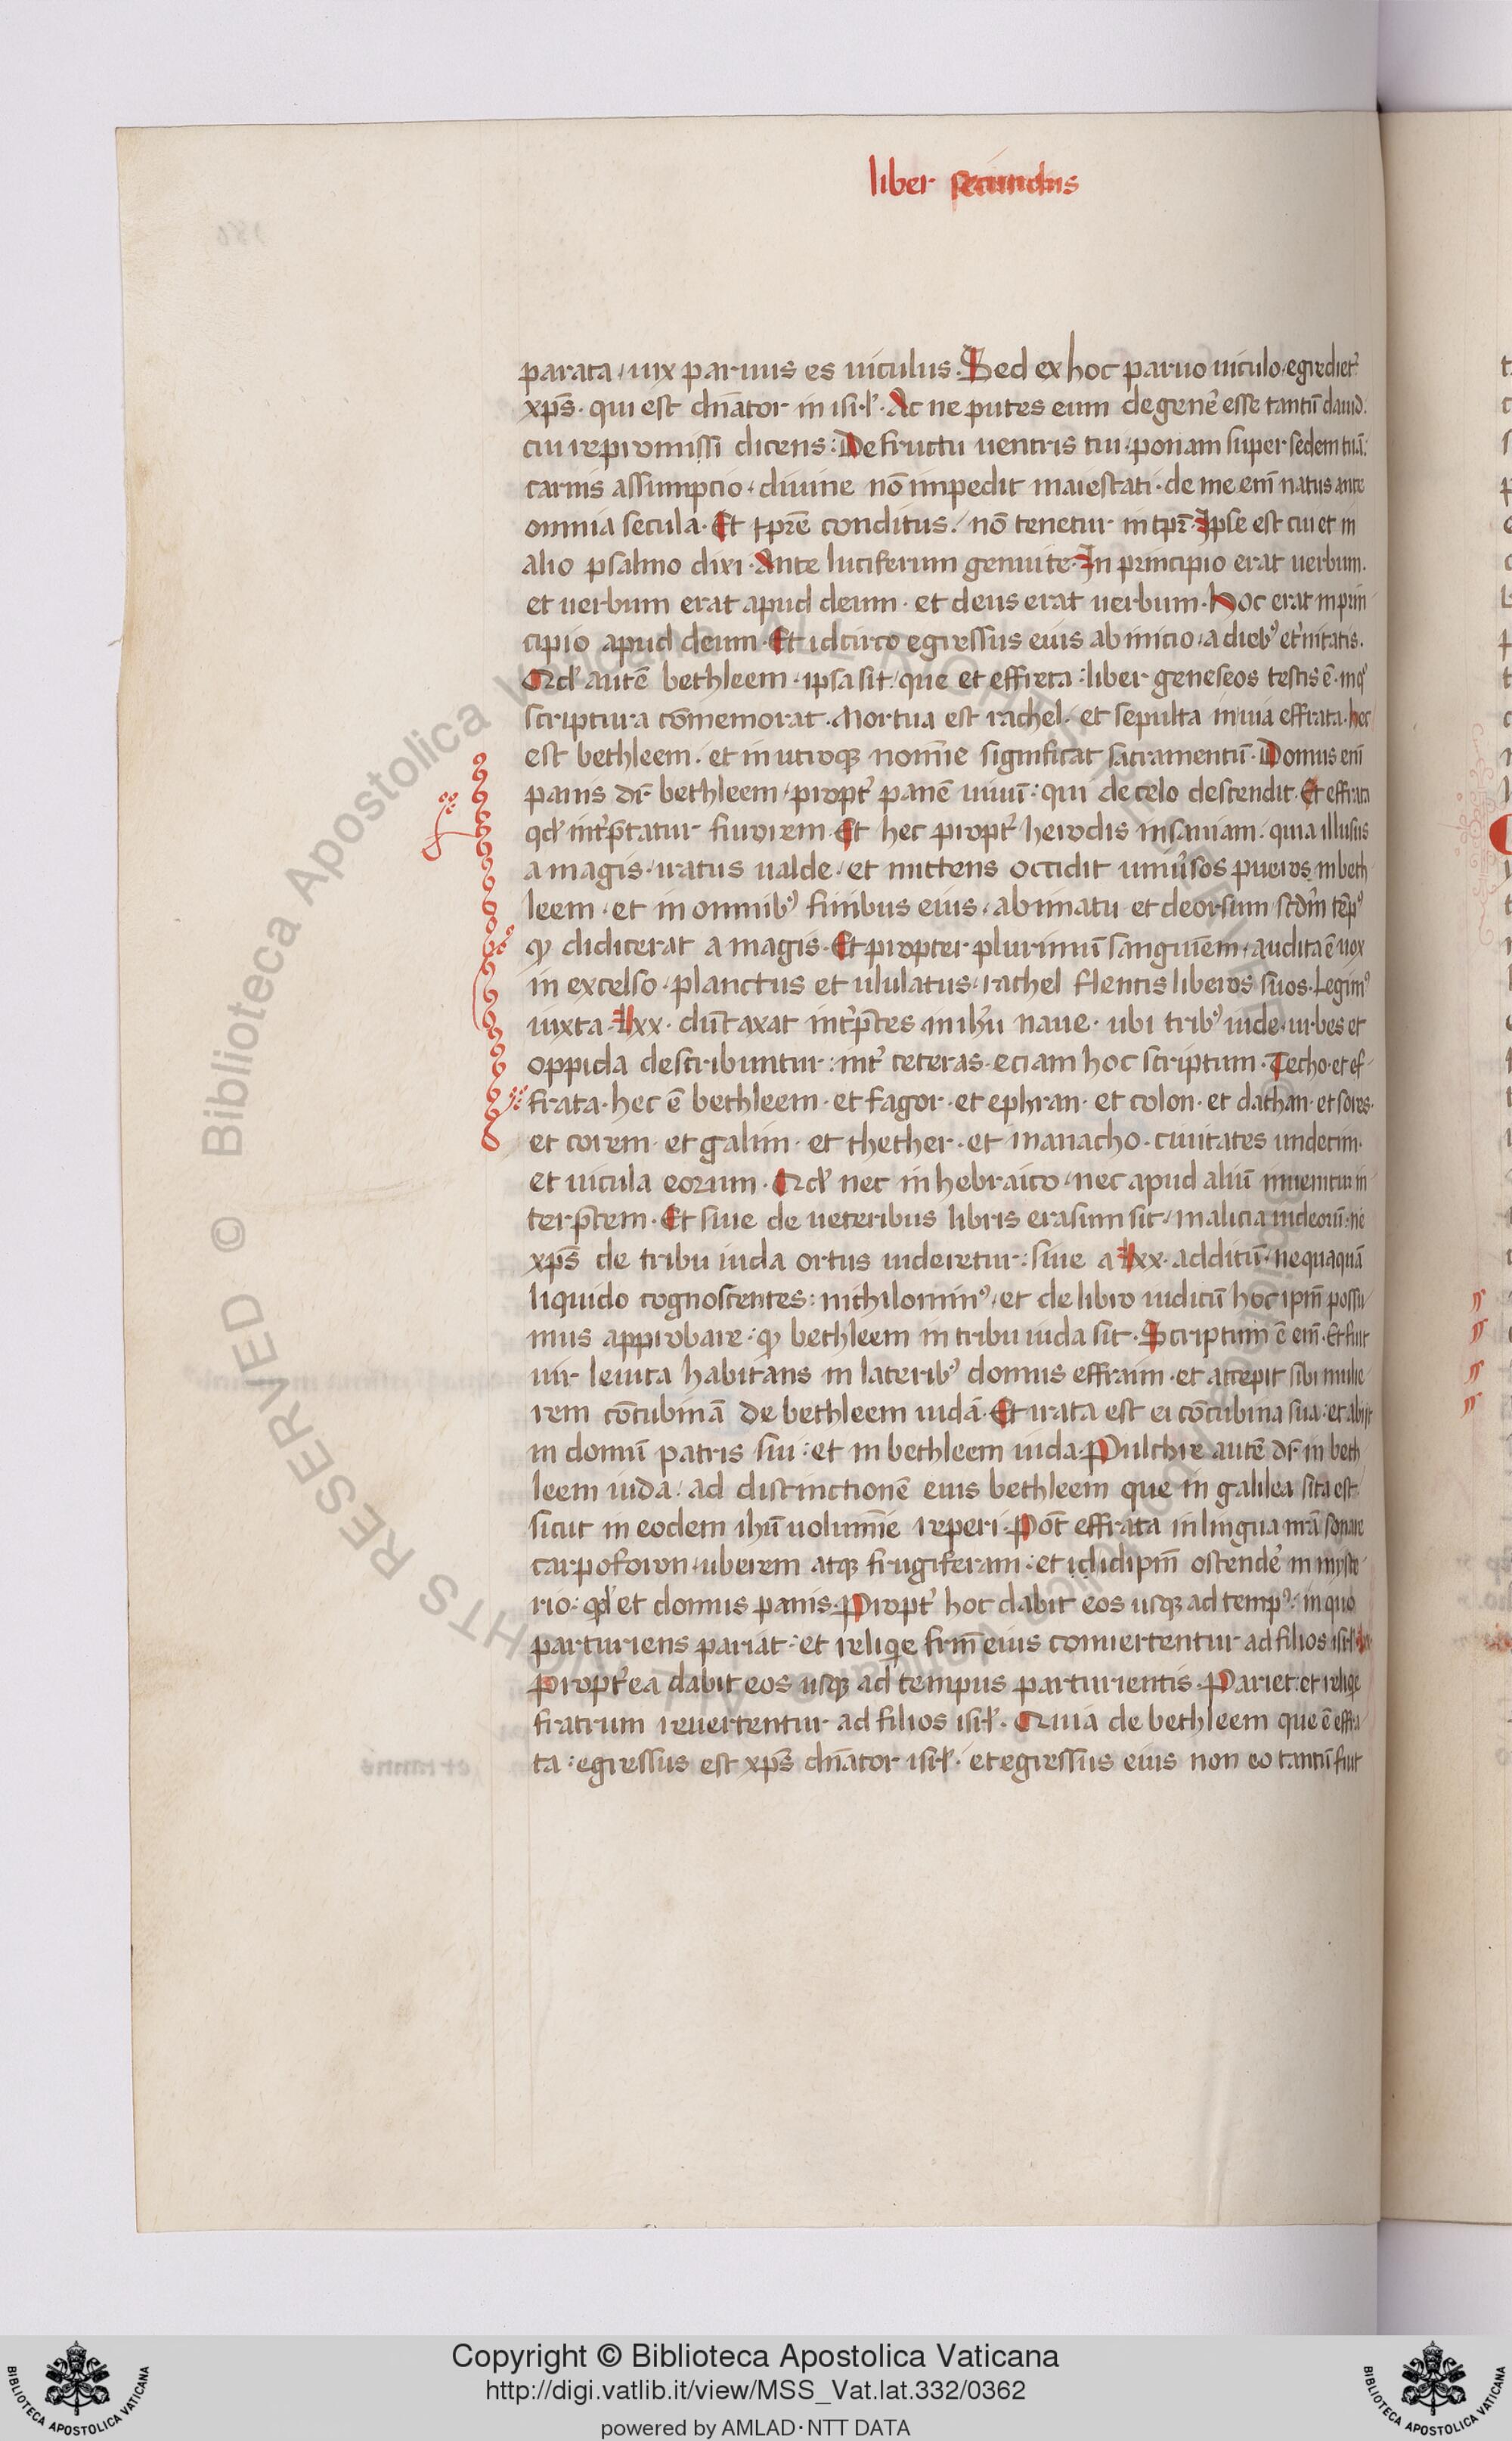 liber secundus
parata / uix paruus es uiculus. Sed ex hoc paruo uiculo / egrediet᷑
xp̄s · qui est dn̄ator in isr̄l · Ac ne putes eum de gen̄e esse tantū dauid.
cui repromissi dicens : De fructu uentris tui · ponam super sedem tuā :
carnis assumptio / diuine nō impedit maiestati · de me eni᷑ natus ante
omnia secula · Et tp̄re conditus / nō tenetur in tp̄r · Ipse est cui et in
alio psalmo dixi · Ante luciferum genui te · In principio erat uerbum.
et uerbum erat apud deum · et deus erat uerbum · Hoc erat in prin
cipio apud deum · Et idcirco egressus eius ab inicio / a diebꝰ et᷑nitatis.
Qd' autē bethleem · ipsa sit / que et effrata : liber geneseos testis ē · inqꝰ
scriptura cōmemorat. Mortua est rachel / et sepulta in uia effrata · hec
est bethleem / et in utroqꝫ nom̄ie significat sacramentū · Domus eni᷑
panis dr̄ bethleem / propt᷑ panē uiuū : qui de celo descendit · Et effrata
qd' int᷑p̄tatur furorem · Et hec propt᷑ herodis insaniam / quia illusus
a magis / iratus ualde / et mittens occidit uniu᷑sos pueros in beth
leem / et in omnibꝰ finibus eius / a bimatu et deorsum scd᷑m tēpꝰ
qđ didicerat a magis · Et propter plurimū sanguinem / audita ē uox
in excelso / planctus et ululatus / rachel flentis liberos suos. Legimꝰ
iuxta · lxx · dūtaxat int᷑p̄tes in ihu᷑ naue · ubi tribꝰ iude / urbes et
oppida describuntur : int᷑ ceteras · eciam hoc scriptum · Techo · et ef-
frata · hec ē bethleem · et fagor · et ephran · et colon · et dathan · et sores ·
et corem · et galim · et thether · et manacho · ciuitates undecim ·
et uicula eorum · Qd' nec in hebraico / nec apud aliū inuenitur in
terp̄tem · Et siue de ueteribus libris erasum sit / malicia iudeorū · ne
xp̄s de tribu iuda ortus uideretur : siue a lxx · additū / nequaquā
liquido cognoscentes : nichilominꝰ / et de libro iudicū hoc ipm̄ possu
mus approbare : qđ bethleem in tribu iuda sit · Scriptum ē eni᷑ · Et fuit
uir leuita habitans in lateribꝰ domus effraim · et accepit sibi mulie
rem cōcubinā de bethleem iudā · Et irata est ei cōcubina sua : et abijt
in domū patris sui : et in bethleem iuda. Pulchre autē dr̄ in beth
leem iuda / ad distinctionē eius bethleem que in galilea sita est
sicut in eodem ihū uolum̄ie reperi · Pōt effrata in lingua nrā sonare
carpoforon / uberem atqꝫ frugiferam : et id idipm̄ ostende᷑ in myste-
rio : qd' et domus panis. Propt᷑ hoc dabit eos usqꝫ ad tempꝰ : in quo
parturiens pariat : et reliqe frm̄ eius conuertentur ad filios isr̄l
Propt᷑ea dabit eos usqꝫ ad tempus parturientis. Pariet : et reliqe
fratrum reuertentur ad filios isr̄l · Quia de bethleem que ē effra-
ta : egressus est xp̄s dn̄ator isr̄l · et egressus eius non eo tantū fuit
Copyright © Biblioteca Apostolica Vaticana
http://digi.vatlib.it/view/MSS_Vat.lat.332/0362
powered by AMLAD·NTT DATA
BIBLIOTECA APOSTOLICA VATICANA
BIBLIOTECA APOSTOLICA VATICANA